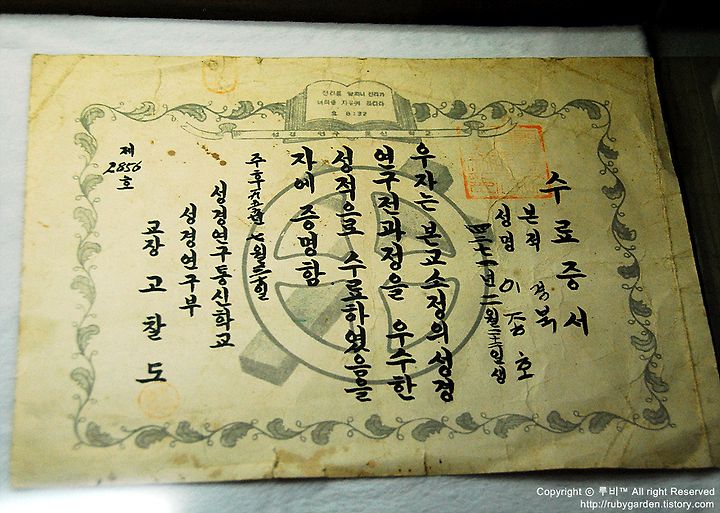 진리를 알찌니 진리가
너희를 자유케 하리라
요 8:32
성경연구통신학교
수료증서
본적 경북
성명 이 호
우자는 본교소정의 성경
연구전과정을 우수한
성적으로 수료하였음을
자에 증명함
주후
성경연구통신학교
성경연구부
교장 고찰도
제
2856
호
Copyright © 루비™ All right Reserved
http://rubygarden.tistory.com